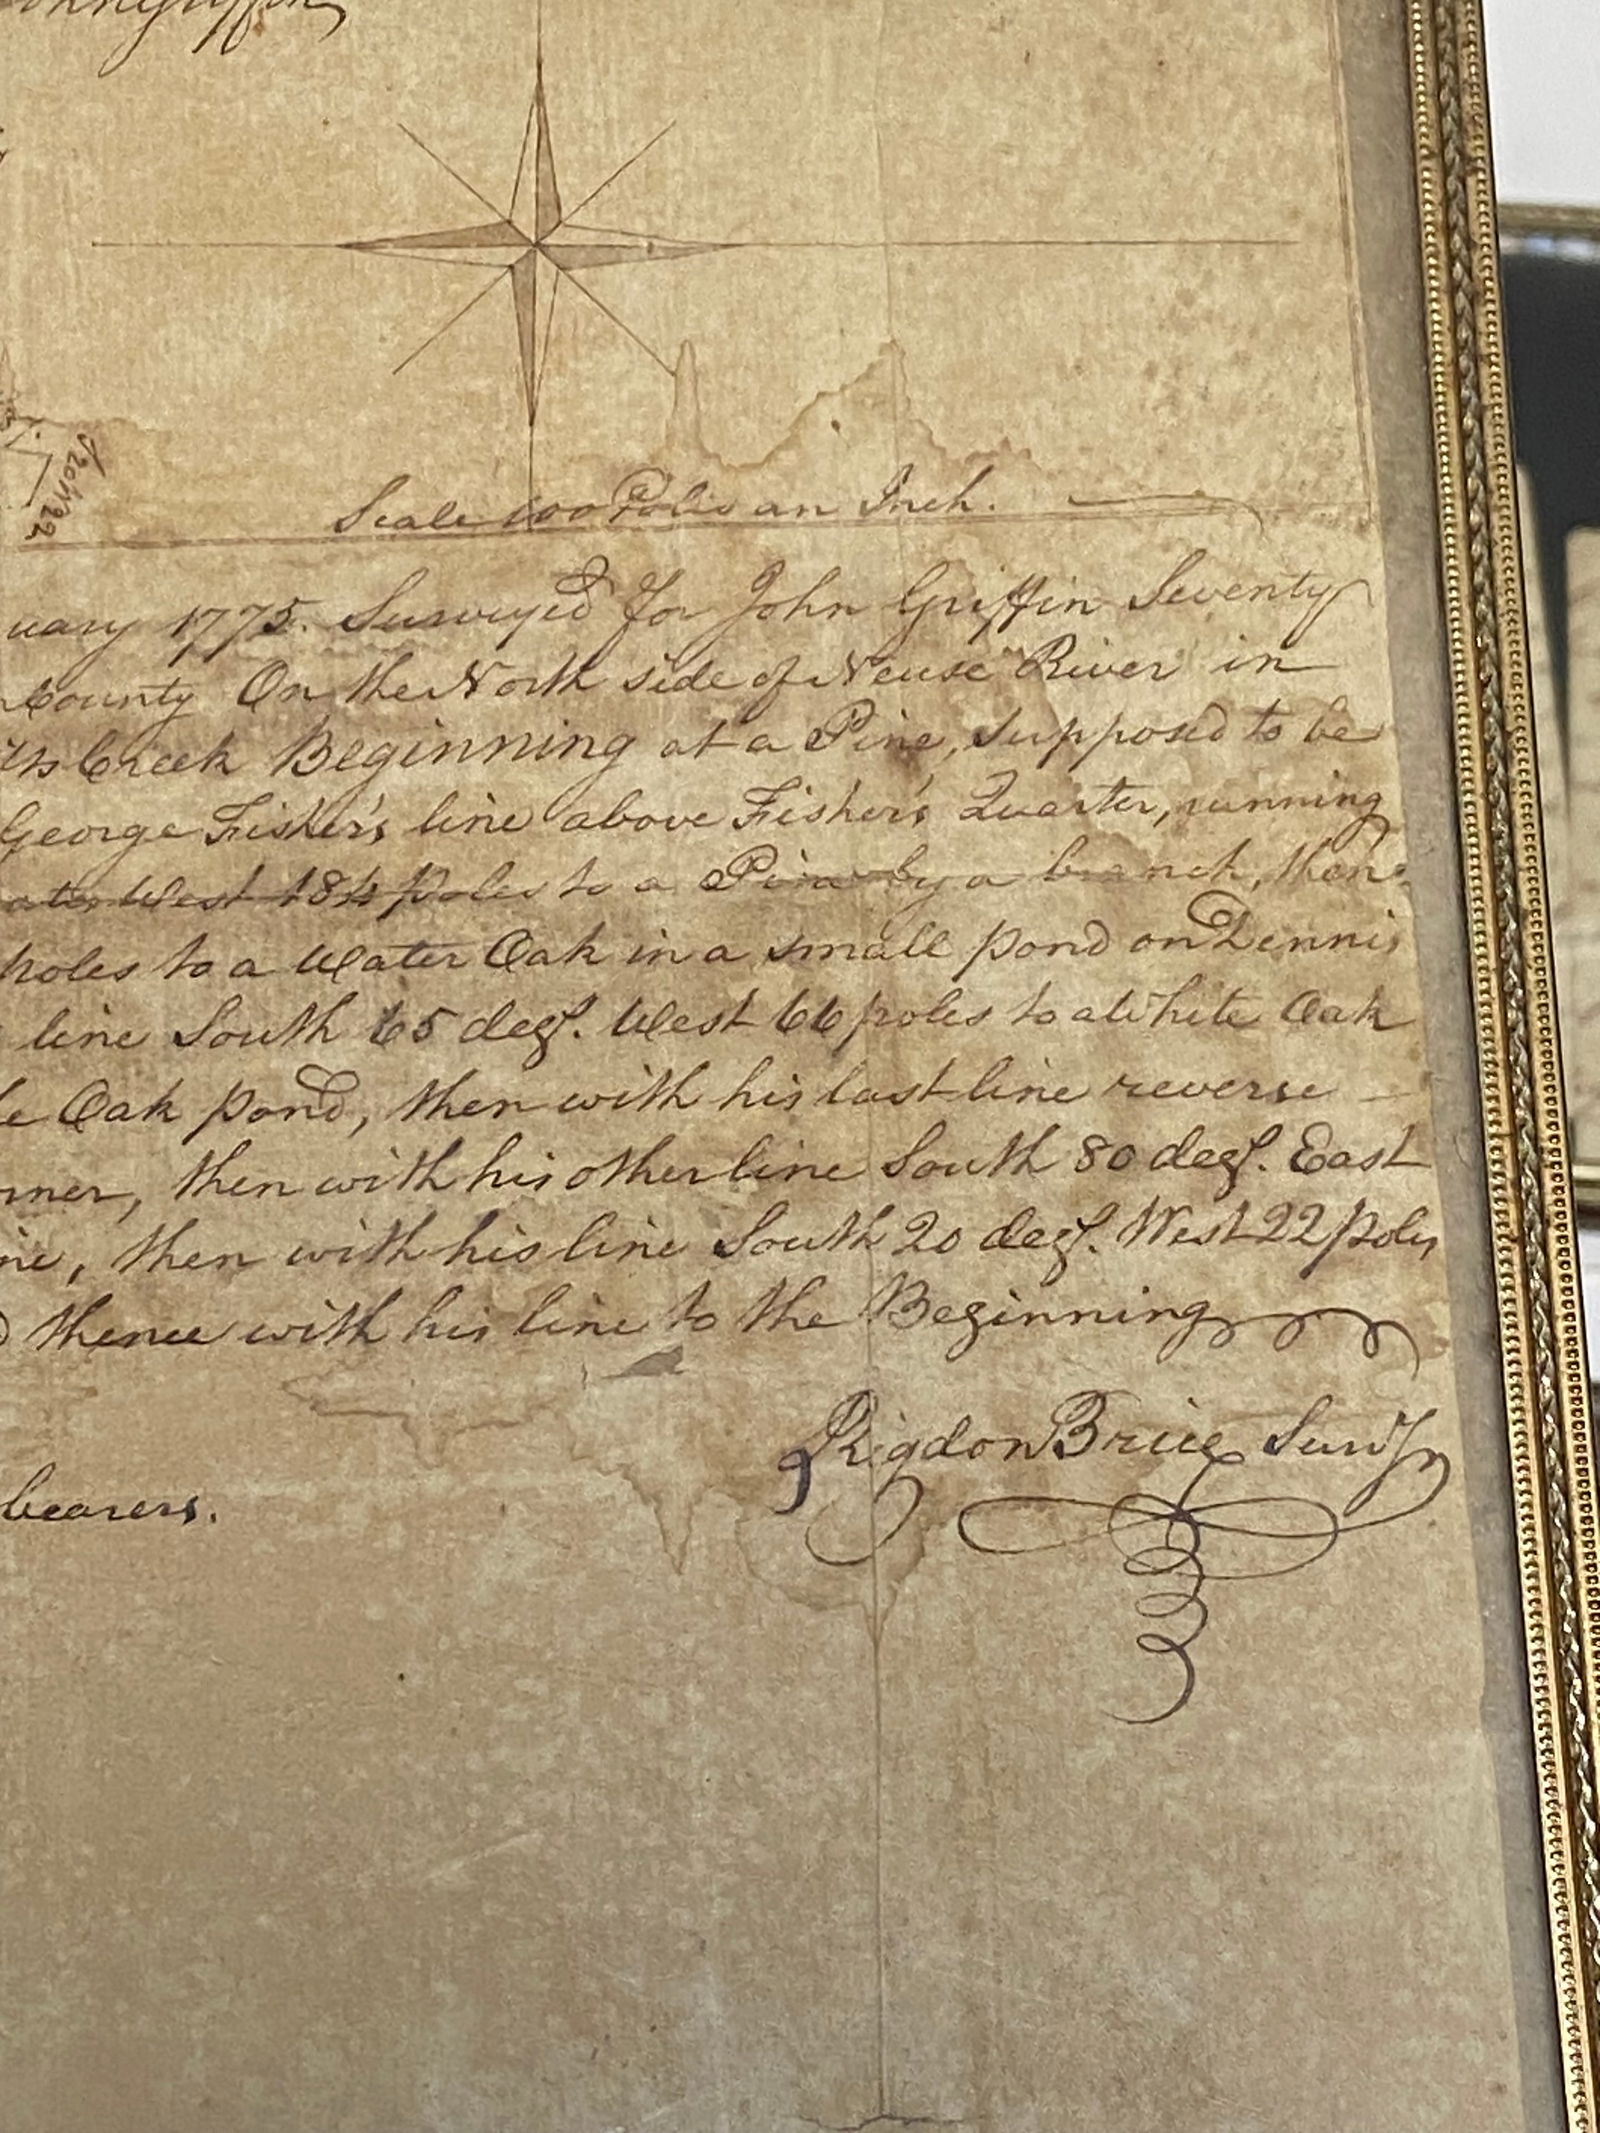 John Griffin
S20W22
Scale 100 Poles an Inch.
uary 1775. Surveyed for John Griffin Seventy
County On the North side of Neuse River in
Creek Beginning at a Pine, supposed to be
George Fisher's line above Fisher's Quarter, running
West 184 poles to a Pine by a branch, then
poles to a Water Oak in a small pond on Dennis
line South 65 degs. West 66 poles to a White Oak
le Oak pond, then with his last line reverse
rner, then with his other line South 80 degs. East
ne, then with his line South 20 degs. West 22 poles
d thence with his line to the Beginning
Rigdon Brice Survr
bearers.